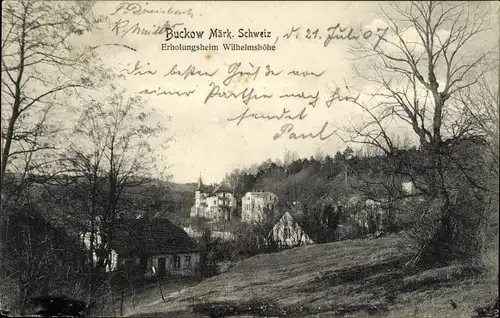 Buckow Märk. Schweiz
Erholungsheim Wilhelmshöhe
d. 21. Juli 07
Die besten Grüße von
einer Parthie nach hier
sendet Paul